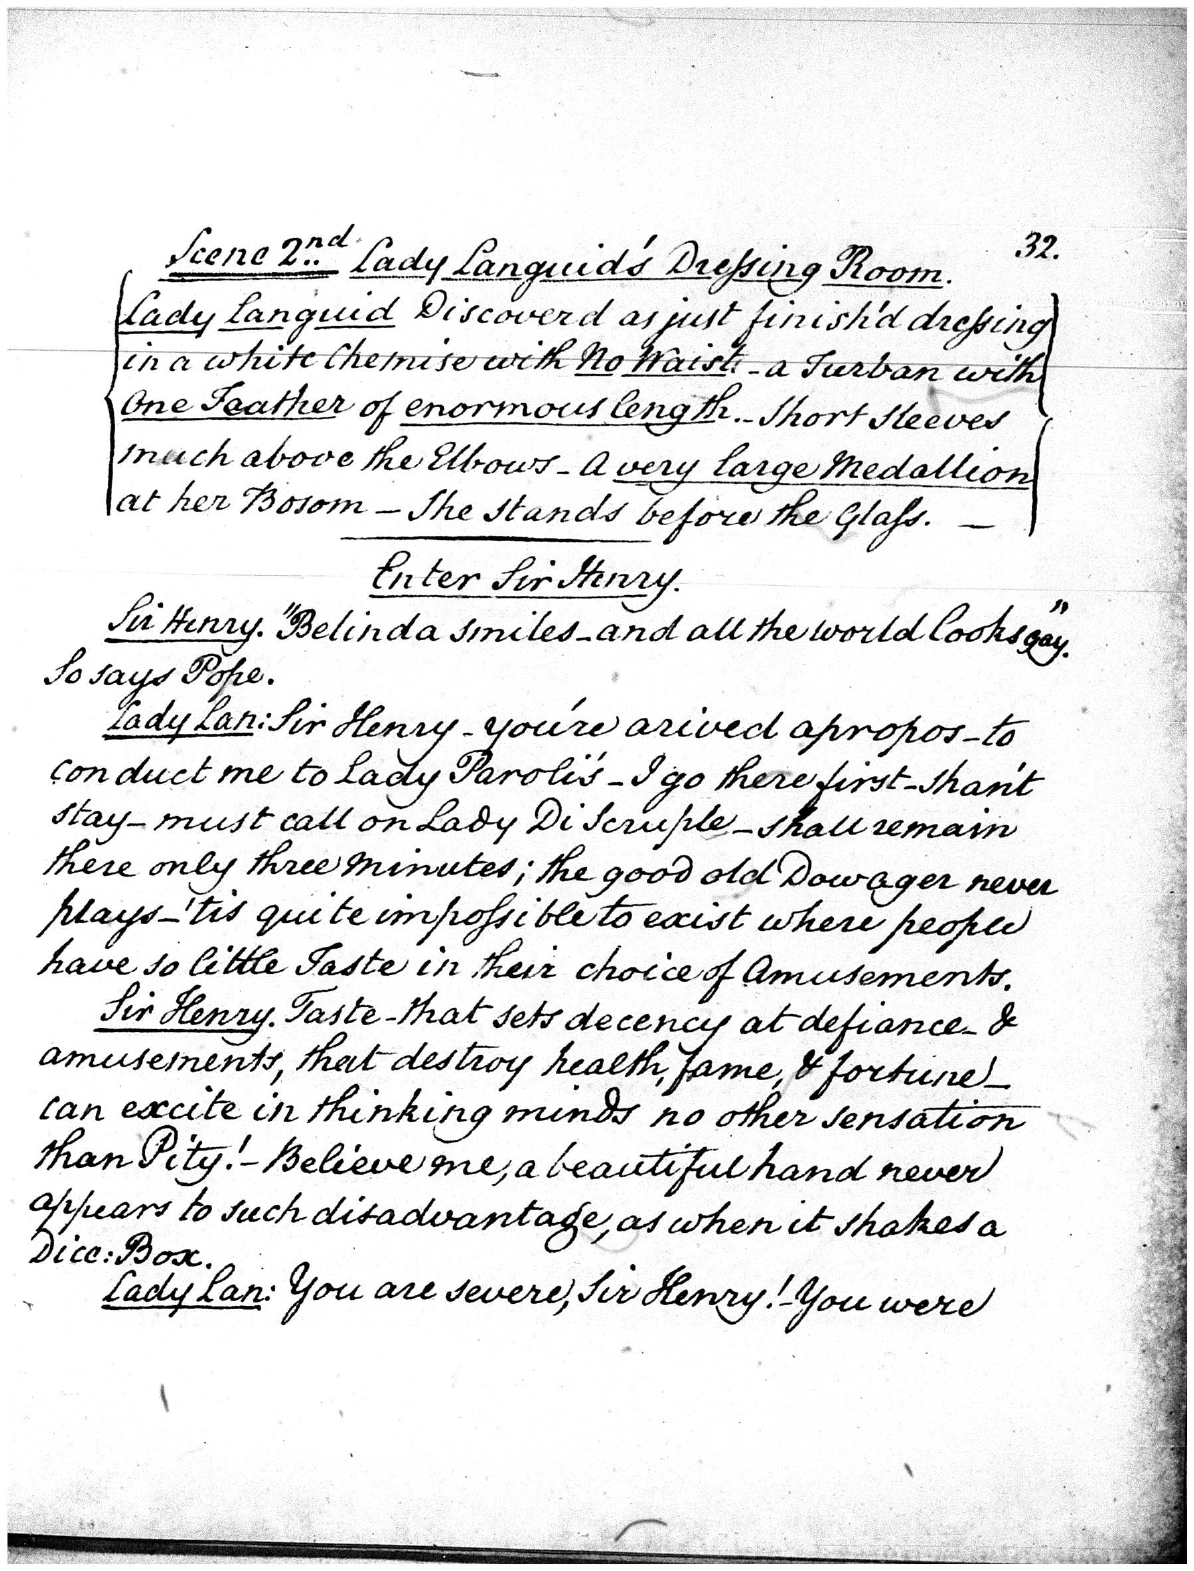 32.
Scene 2nd. Lady Languid's Dressing Room.
Lady Languid Discover'd as just finish'd dressing
in a white Chemise with No Waist. - a Turban with
One Feather of enormous length. - Short Sleeves
much above the Elbows - A very large Medallion
at her Bosom - She stands before the Glass. -
Enter Sir Henry.
Sir Henry. "Belinda smiles - and all the world looks gay."
So says Pope.
Lady Lan: Sir Henry - you're arived apropos - to
conduct me to Lady Paroli's - I go there first - shan't
stay - must call on Lady Di Scruple - shall remain
there only three Minutes; the good old Dowager never
plays - 'tis quite impossible to exist where people
have so little Taste in their choice of Amusements.
Sir Henry. Taste - that sets decency at defiance - &
amusements, that destroy health, fame, & fortune -
can excite in thinking minds no other sensation
than Pity! - Believe me, a beautiful hand never
appears to such disadvantage, as when it shakes a
Dice: Box.
Lady Lan: You are severe, Sir Henry! - You were